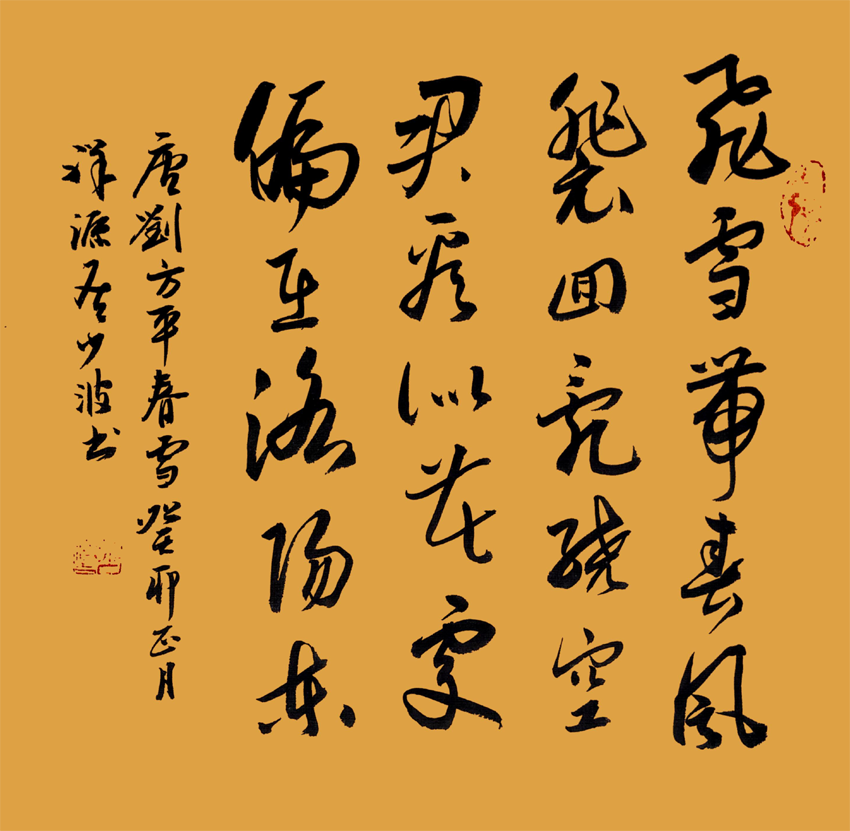 飛雪帶春風
裵囬亂繞空
君看似花處
偏在洛陽東
唐劉方平春雪癸卯正月
祥源少波书